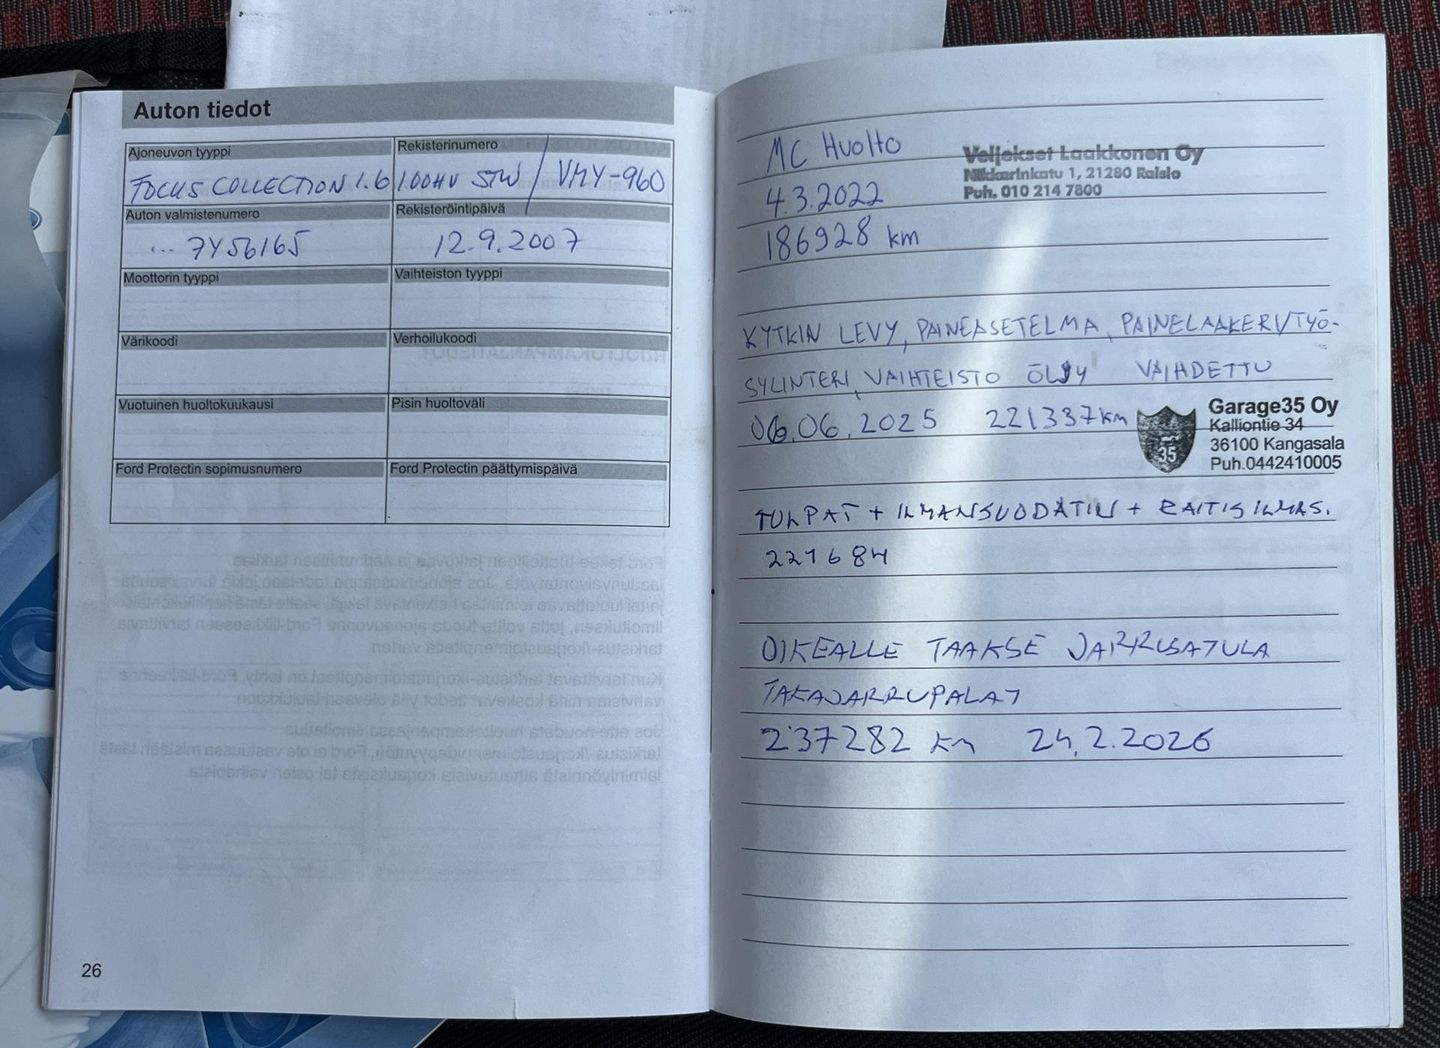 Auton tiedot
Ajoneuvon tyyppi
Rekisterinumero
FOCUS COLLECTION 1.6 100HV STW / VMY-960
Auton valmistenumero
Rekisteröintipäivä
... 7Y56165
12.9.2007
Moottorin tyyppi
Vaihteiston tyyppi
Värikoodi
Verhoilukoodi
Vuotuinen huoltokuukausi
Pisin huoltoväli
Ford Protectin sopimusnumero
Ford Protectin päättymispäivä
26
MC Huolto
4.3.2022
186928 km
Veljekset Laakkonen Oy
1, 21280 Raisio
Puh. 010 214 7800
KYTKIN LEVY, PAINEASETELMA, PAINELAAKERI/TYÖ-
SYLINTERI, VAIHTEISTO ÖLJY VAIHDETTU
06.06.2025 221337 km
35
Garage35 Oy
Kalliontie 34
36100 Kangasala
Puh.0442410005
TULPAT + ILMANSUODATIN + RAITISILMAS.
221684
OIKEALLE TAAKSE JARRUSATULA
TAKAJARRUPALAT
237282 km 24.2.2026